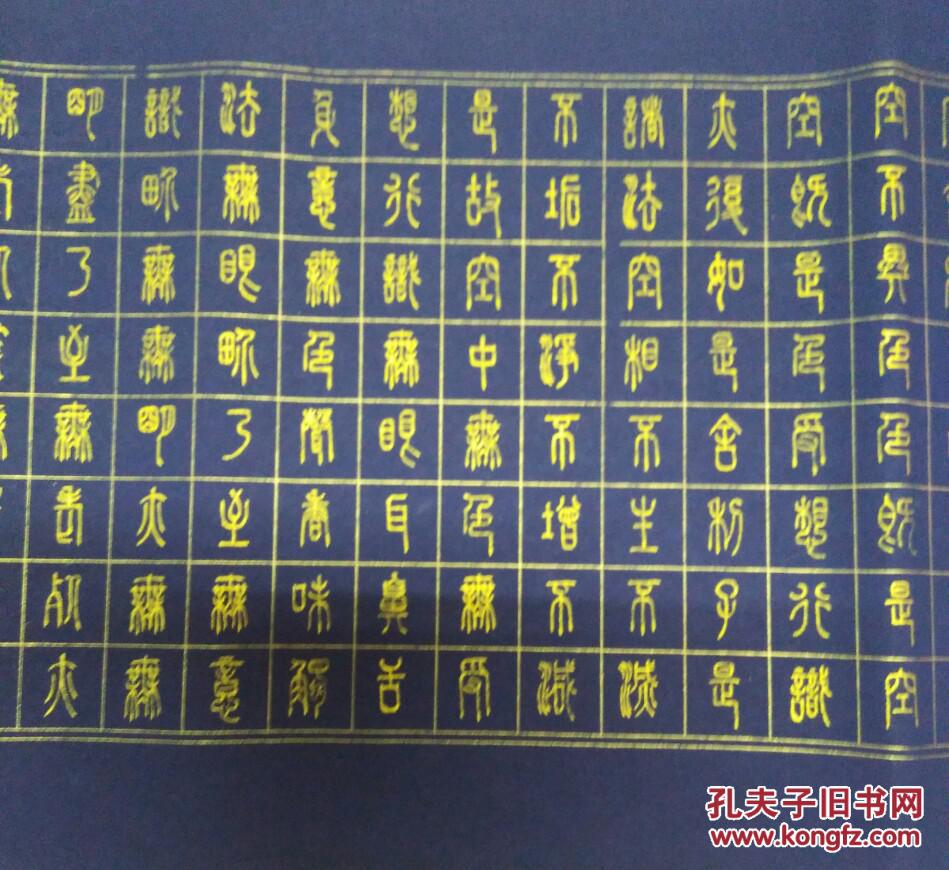 空不異色色即是空
空即是色受想行識
亦復如是舍利子是
諸法空相不生不滅
不垢不淨不增不減
是故空中無色無受
想行識無眼耳鼻舌
身意無色聲香味觸
法無眼界乃至無意
識界無無明亦無無
明盡乃至無老死亦
孔夫子旧书网
www.kongfz.com